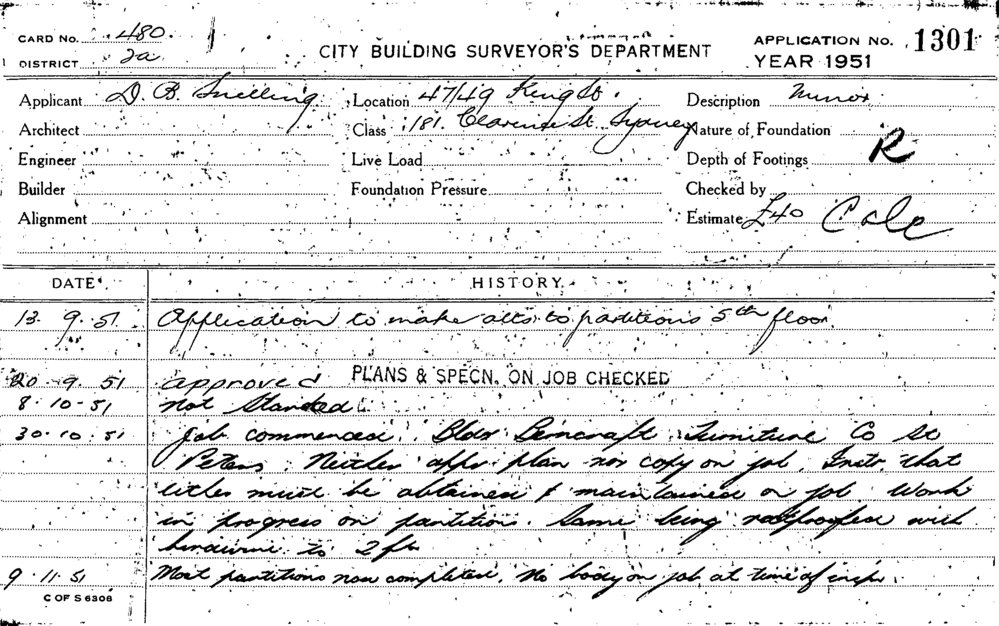 CARD No. 480.
DISTRICT 2a
CITY BUILDING SURVEYOR'S DEPARTMENT
APPLICATION No. 1301
YEAR 1951
Applicant D. B. Snelling
Location 47/49 King St.
Description Minor
Architect
Class 181. Clarence St. Sydney
Nature of Foundation R
Engineer
Live Load
Depth of Footings
Builder
Foundation Pressure
Checked by
Alignment
Estimate £40
DATE HISTORY
13 9.51 Application to make alts to partitions 5th floor
20 9 51 approved PLANS & SPECN. ON JOB CHECKED
8.10.51 Not Started
30.10.51 Job commenced. Bldr Furniture Co St
Peters. Neither appr plan nor copy on job. Instr that
must be obtained & maintained on job Work
in progress on partitions. Same being with
to 2 ft
9.11.51 Most partitions now completed. No body on job at time of insp.
C OF S 6306